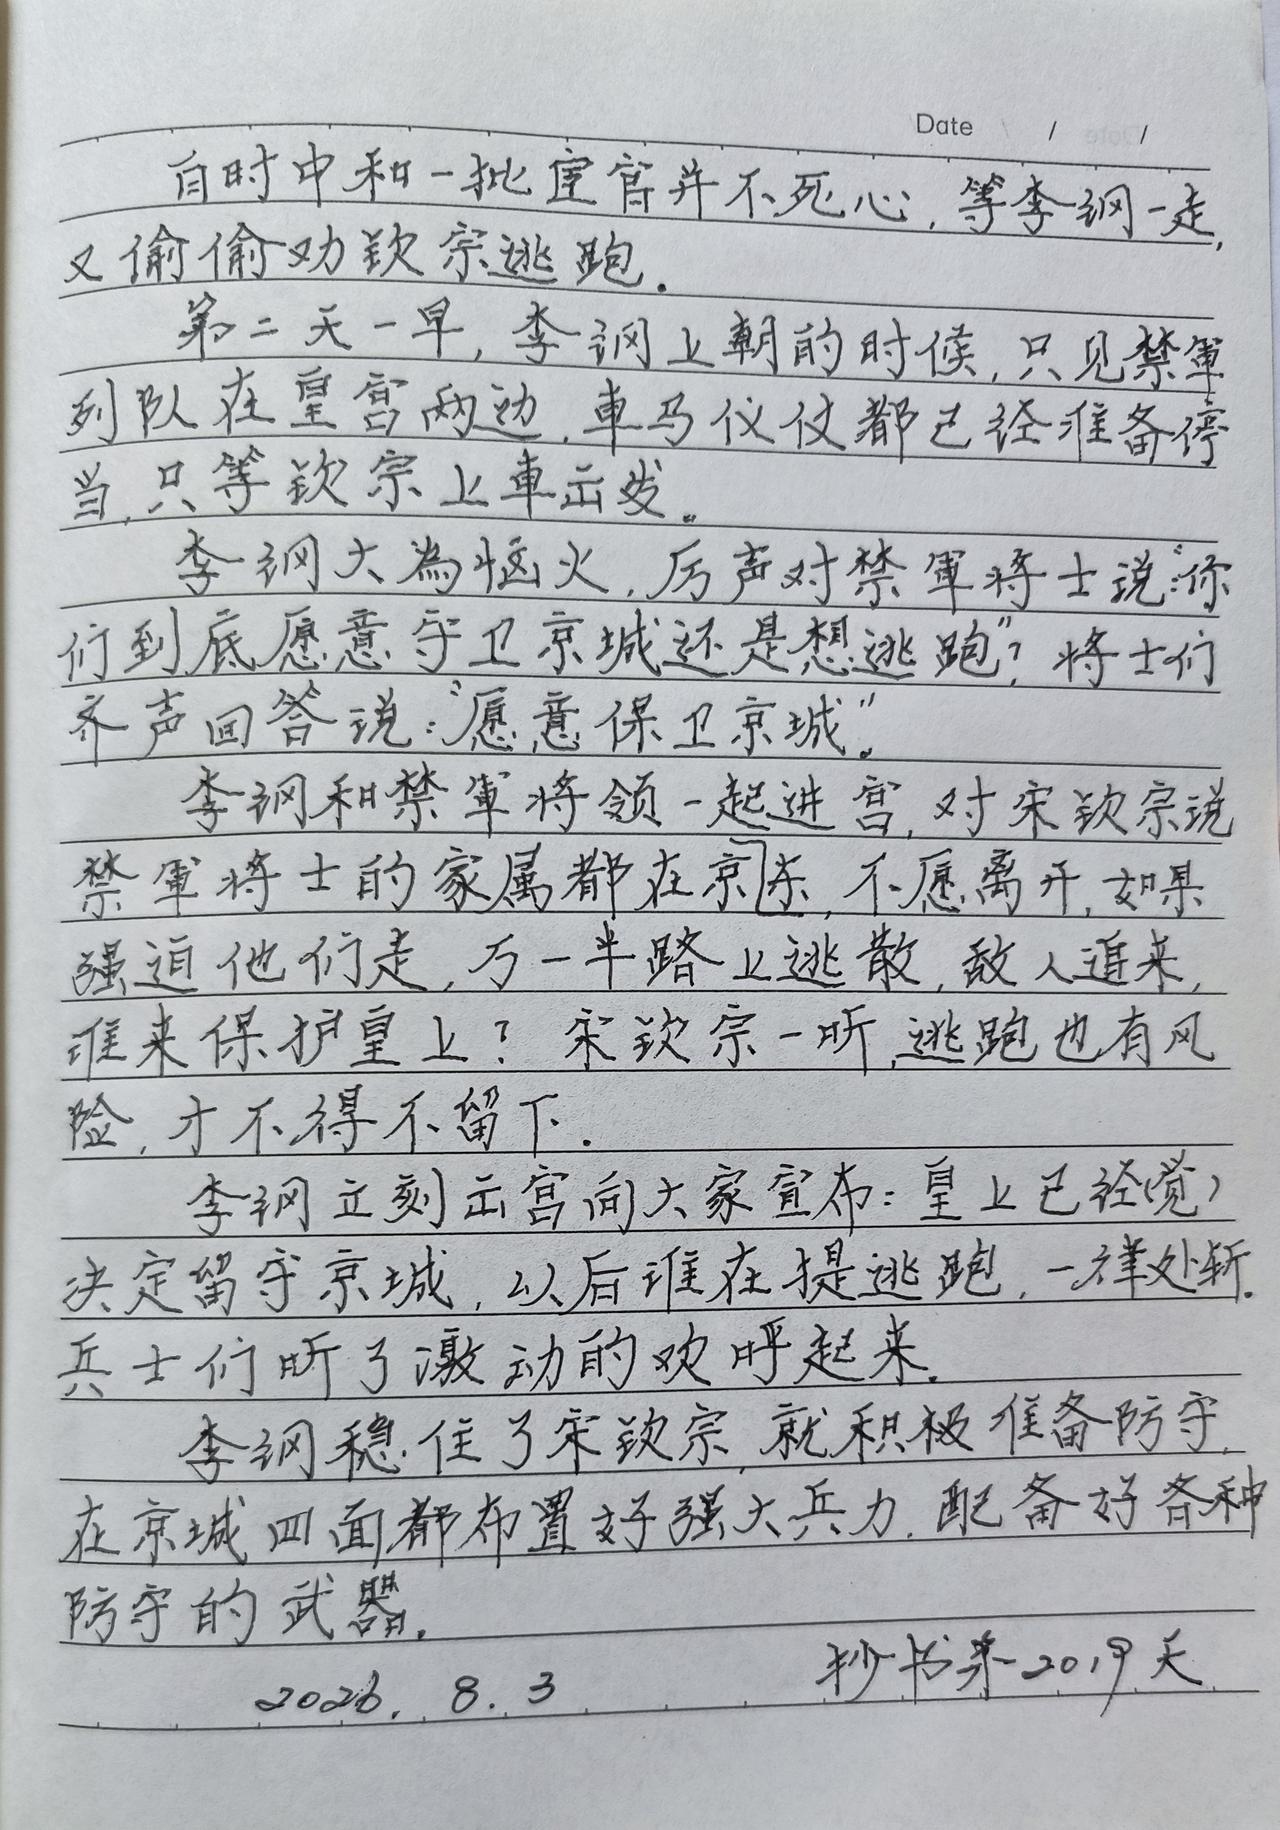 Date / /
白时中和一批宦官并不死心,等李纲一走,
又偷偷劝钦宗逃跑.
第二天一早,李纲上朝的时候,只见禁軍
列队在皇宫两边,車马仪仗都已经准备停
当,只等钦宗上車出发。
李纲大為恼火,厉声对禁軍将士说:“你
们到底愿意守卫京城还是想逃跑”?将士们
齐声回答说:“愿意保卫京城”。
李纲和禁軍将领一起进宫,对宋钦宗说
禁軍将士的家属都在京东,不愿离开,如果
强迫他们走,万一半路上逃散,敌人追来,
谁来保护皇上?宋钦宗一听,逃跑也有风
险,才不得不留下.
李纲立刻出宫向大家宣布:皇上已经(觉)
决定留守京城,以后谁在提逃跑,一律处斩.
兵士们听了激动的欢呼起来.
李纲稳住了宋钦宗,就积极准备防守,
在京城四面都布置好强大兵力,配备好各种
防守的武器.
2026.8.3 抄书第2019天